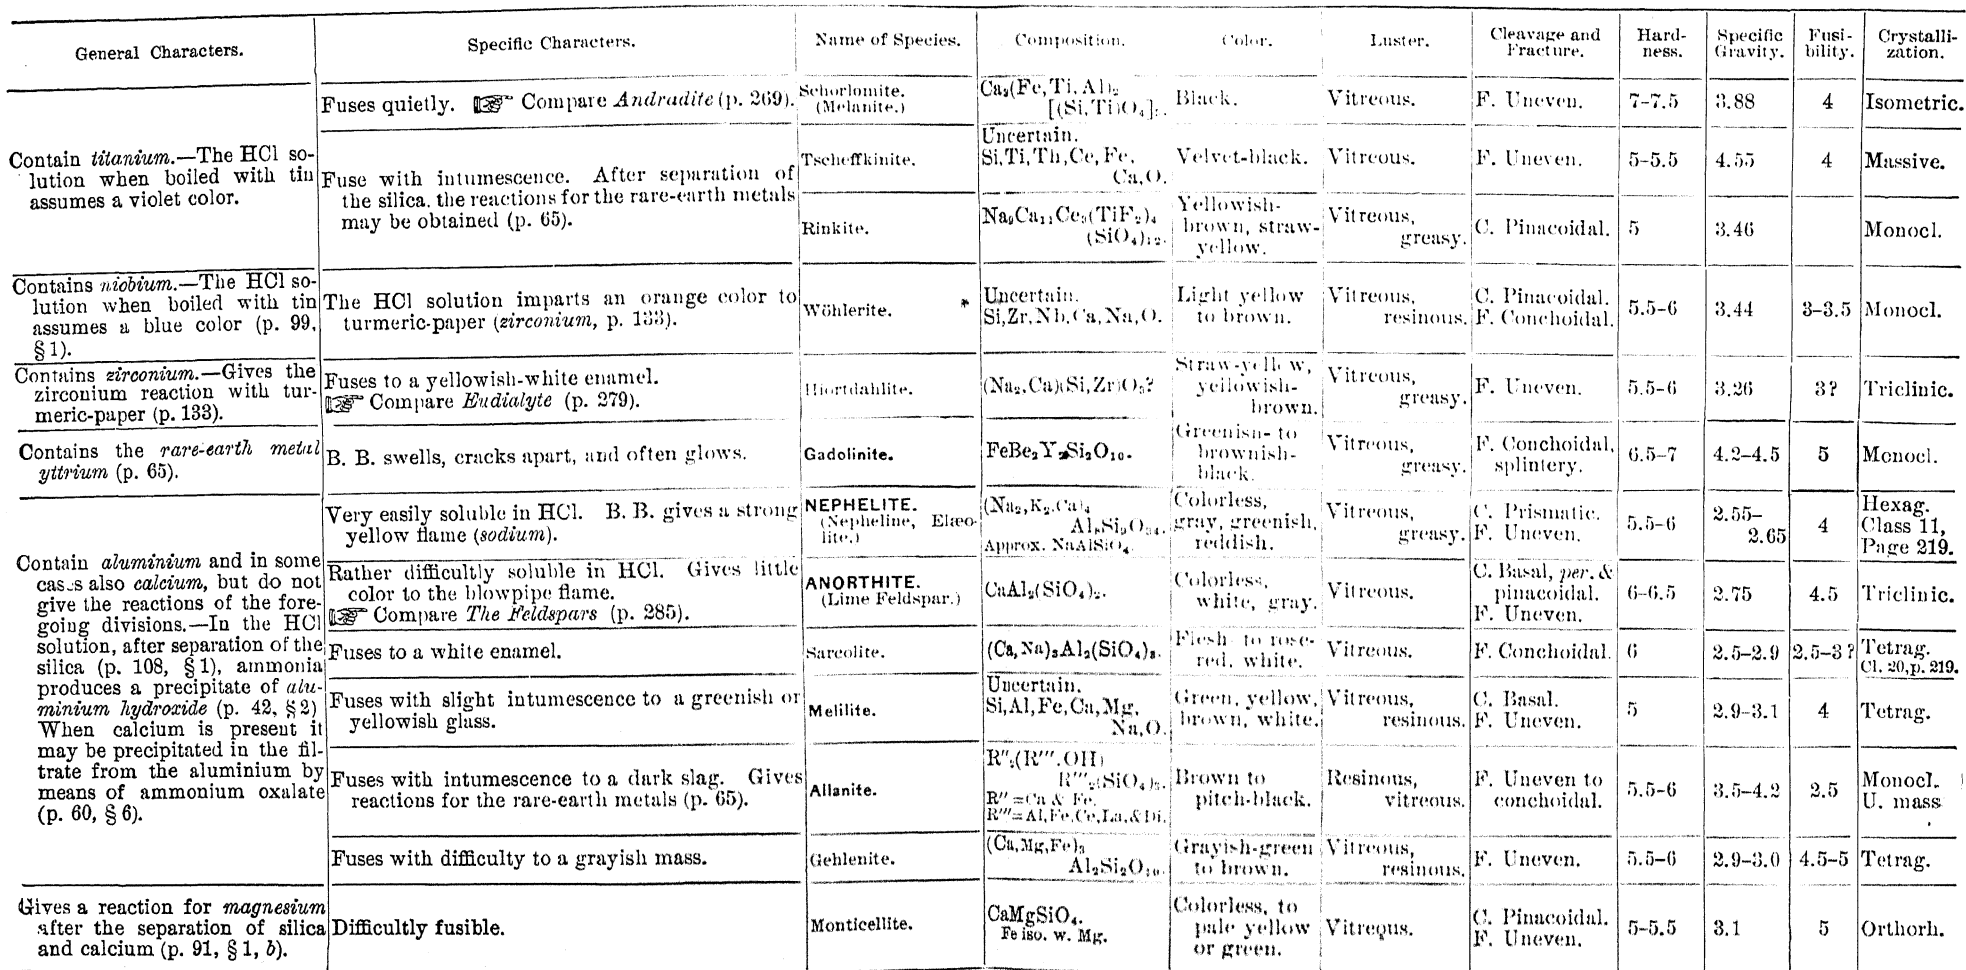 General Characters.
Specific Characters.
Name of Species.
Composition.
Color.
Luster.
Cleavage and
Fracture.
Hard-
ness.
Specific
Gravity.
Fusi-
bility.
Crystalli-
zation.
Contain titanium.—The HCl so-
lution when boiled with tin
assumes a violet color.
Fuses quietly. ☞ Compare Andradite (p. 269).
Schorlomite.
(Melanite.)
Ca₃(Fe, Ti, Al)₂
[(Si, Ti)O₄]₃.
Black.
Vitreous.
F. Uneven.
7–7.5
3.88
4
Isometric.
Fuse with intumescence. After separation of
the silica. the reactions for the rare-earth metals
may be obtained (p. 65).
Tscheffkinite.
Uncertain.
Si, Ti, Th, Ce, Fe,
Ca, O.
Velvet-black.
Vitreous.
F. Uneven.
5–5.5
4.55
4
Massive.
Rinkite.
Na₉Ca₁₁Ce₃(TiF₂)₄
(SiO₄)₁₂.
Yellowish-
brown, straw-
yellow.
Vitreous,
greasy.
C. Pinacoidal.
5
3.46
Monocl.
Contains niobium.—The HCl so-
lution when boiled with tin
assumes a blue color (p. 99,
§ 1).
The HCl solution imparts an orange color to
turmeric-paper (zirconium, p. 133).
Wöhlerite.
Uncertain.
Si, Zr, Nb, Ca, Na, O.
Light yellow
to brown.
Vitreous,
resinous.
C. Pinacoidal.
F. Conchoidal.
5.5–6
3.44
3–3.5
Monocl.
Contains zirconium.—Gives the
zirconium reaction with tur-
meric-paper (p. 133).
Fuses to a yellowish-white enamel.
☞ Compare Eudialyte (p. 279).
Hiortdahlite.
(Na₂, Ca)(Si, Zr)O₃?
Straw-yellow,
yellowish-
brown.
Vitreous,
greasy.
F. Uneven.
5.5–6
3.26
3?
Triclinic.
Contains the rare-earth metal
yttrium (p. 65).
B. B. swells, cracks apart, and often glows.
Gadolinite.
FeBe₂Y₂Si₂O₁₀.
Greenish- to
brownish-
black.
Vitreous,
greasy.
F. Conchoidal,
splintery.
6.5–7
4.2–4.5
5
Monocl.
Contain aluminium and in some
cases also calcium, but do not
give the reactions of the fore-
going divisions.—In the HCl
solution, after separation of the
silica (p. 108, § 1), ammonia
produces a precipitate of alu-
minium hydroxide (p. 42, § 2)
When calcium is present it
may be precipitated in the fil-
trate from the aluminium by
means of ammonium oxalate
(p. 60, § 6).
Very easily soluble in HCl. B. B. gives a strong
yellow flame (sodium).
NEPHELITE.
(Nepheline, Elæo-
lite.)
(Na₂, K₂, Ca)₄
Al₈Si₉O₃₄.
Approx. NaAlSiO₄.
Colorless,
gray, greenish,
reddish.
Vitreous,
greasy.
C. Prismatic.
F. Uneven.
5.5–6
2.55–
2.65
4
Hexag.
Class 11,
Page 219.
Rather difficultly soluble in HCl. Gives little
color to the blowpipe flame.
☞ Compare The Feldspars (p. 285).
ANORTHITE.
(Lime Feldspar.)
CaAl₂(SiO₄)₂.
Colorless,
white, gray.
Vitreous.
C. Basal, per. &
pinacoidal.
F. Uneven.
6–6.5
2.75
4.5
Triclinic.
Fuses to a white enamel.
Sarcolite.
(Ca, Na)₃Al₂(SiO₄)₃.
Flesh- to rose-
red, white.
Vitreous.
F. Conchoidal.
6
2.5–2.9
2.5–3?
Tetrag.
Cl. 20, p. 219.
Fuses with slight intumescence to a greenish or
yellowish glass.
Melilite.
Uncertain.
Si, Al, Fe, Ca, Mg,
Na, O.
Green, yellow,
brown, white.
Vitreous,
resinous.
C. Basal.
F. Uneven.
5
2.9–3.1
4
Tetrag.
Fuses with intumescence to a dark slag. Gives
reactions for the rare-earth metals (p. 65).
Allanite.
R″₂(R‴.OH)
R‴₂(SiO₄)₃.
R″ = Ca & Fe.
R‴ = Al, Fe, Ce, La, & Di.
Brown to
pitch-black.
Resinous,
vitreous.
F. Uneven to
conchoidal.
5.5–6
3.5–4.2
2.5
Monocl.
U. mass
Fuses with difficulty to a grayish mass.
Gehlenite.
(Ca, Mg, Fe)₃
Al₂Si₂O₁₀.
Grayish-green
to brown.
Vitreous,
resinous.
F. Uneven.
5.5–6
2.9–3.0
4.5–5
Tetrag.
Gives a reaction for magnesium
after the separation of silica
and calcium (p. 91, § 1, b).
Difficultly fusible.
Monticellite.
CaMgSiO₄.
Fe iso. w. Mg.
Colorless, to
pale yellow
or green.
Vitreous.
C. Pinacoidal.
F. Uneven.
5–5.5
3.1
5
Orthorh.